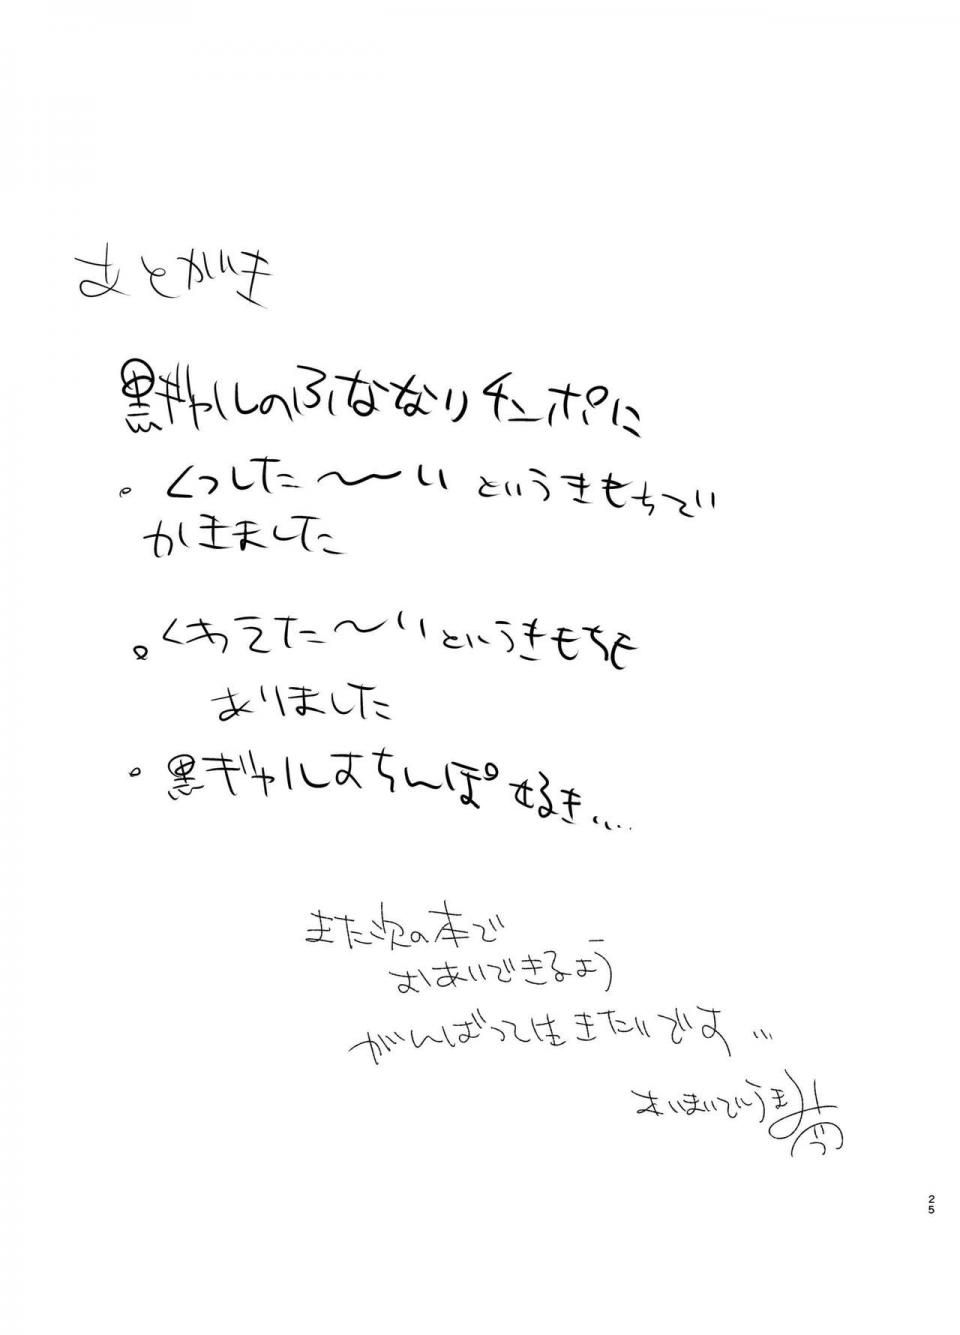 あとがき
黒ギャルのふたなりチンポに
・くっした〜〜い というきもちで
かきました
・くわえた〜い というきもちも
ありました
・黒ギャルおちんぽ好き....
また次の本で
おあいできるよう
がんばって生きたいです...
25